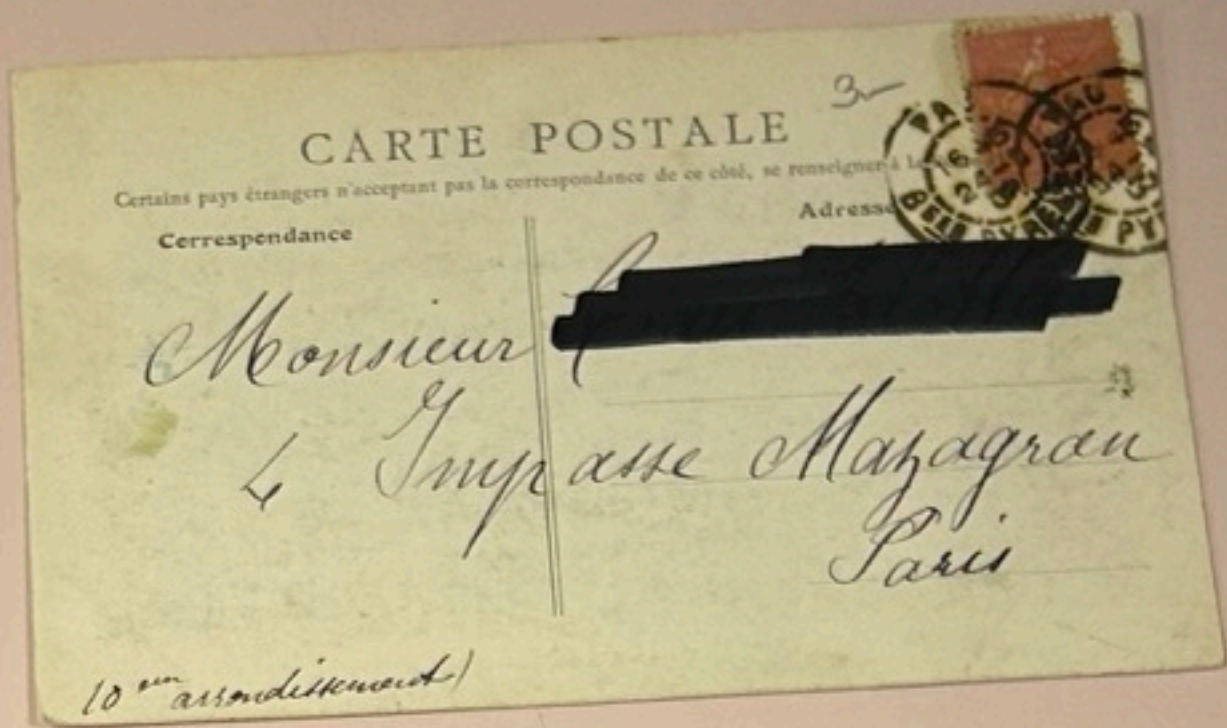 3
CARTE POSTALE
Certains pays étrangers n'acceptant pas la correspondance de ce côté, se renseigner à la
Correspondance
Adresse
Monsieur
4 Impasse Mazagran
Paris
10 em arrondissement)
PAU
BSES PYR